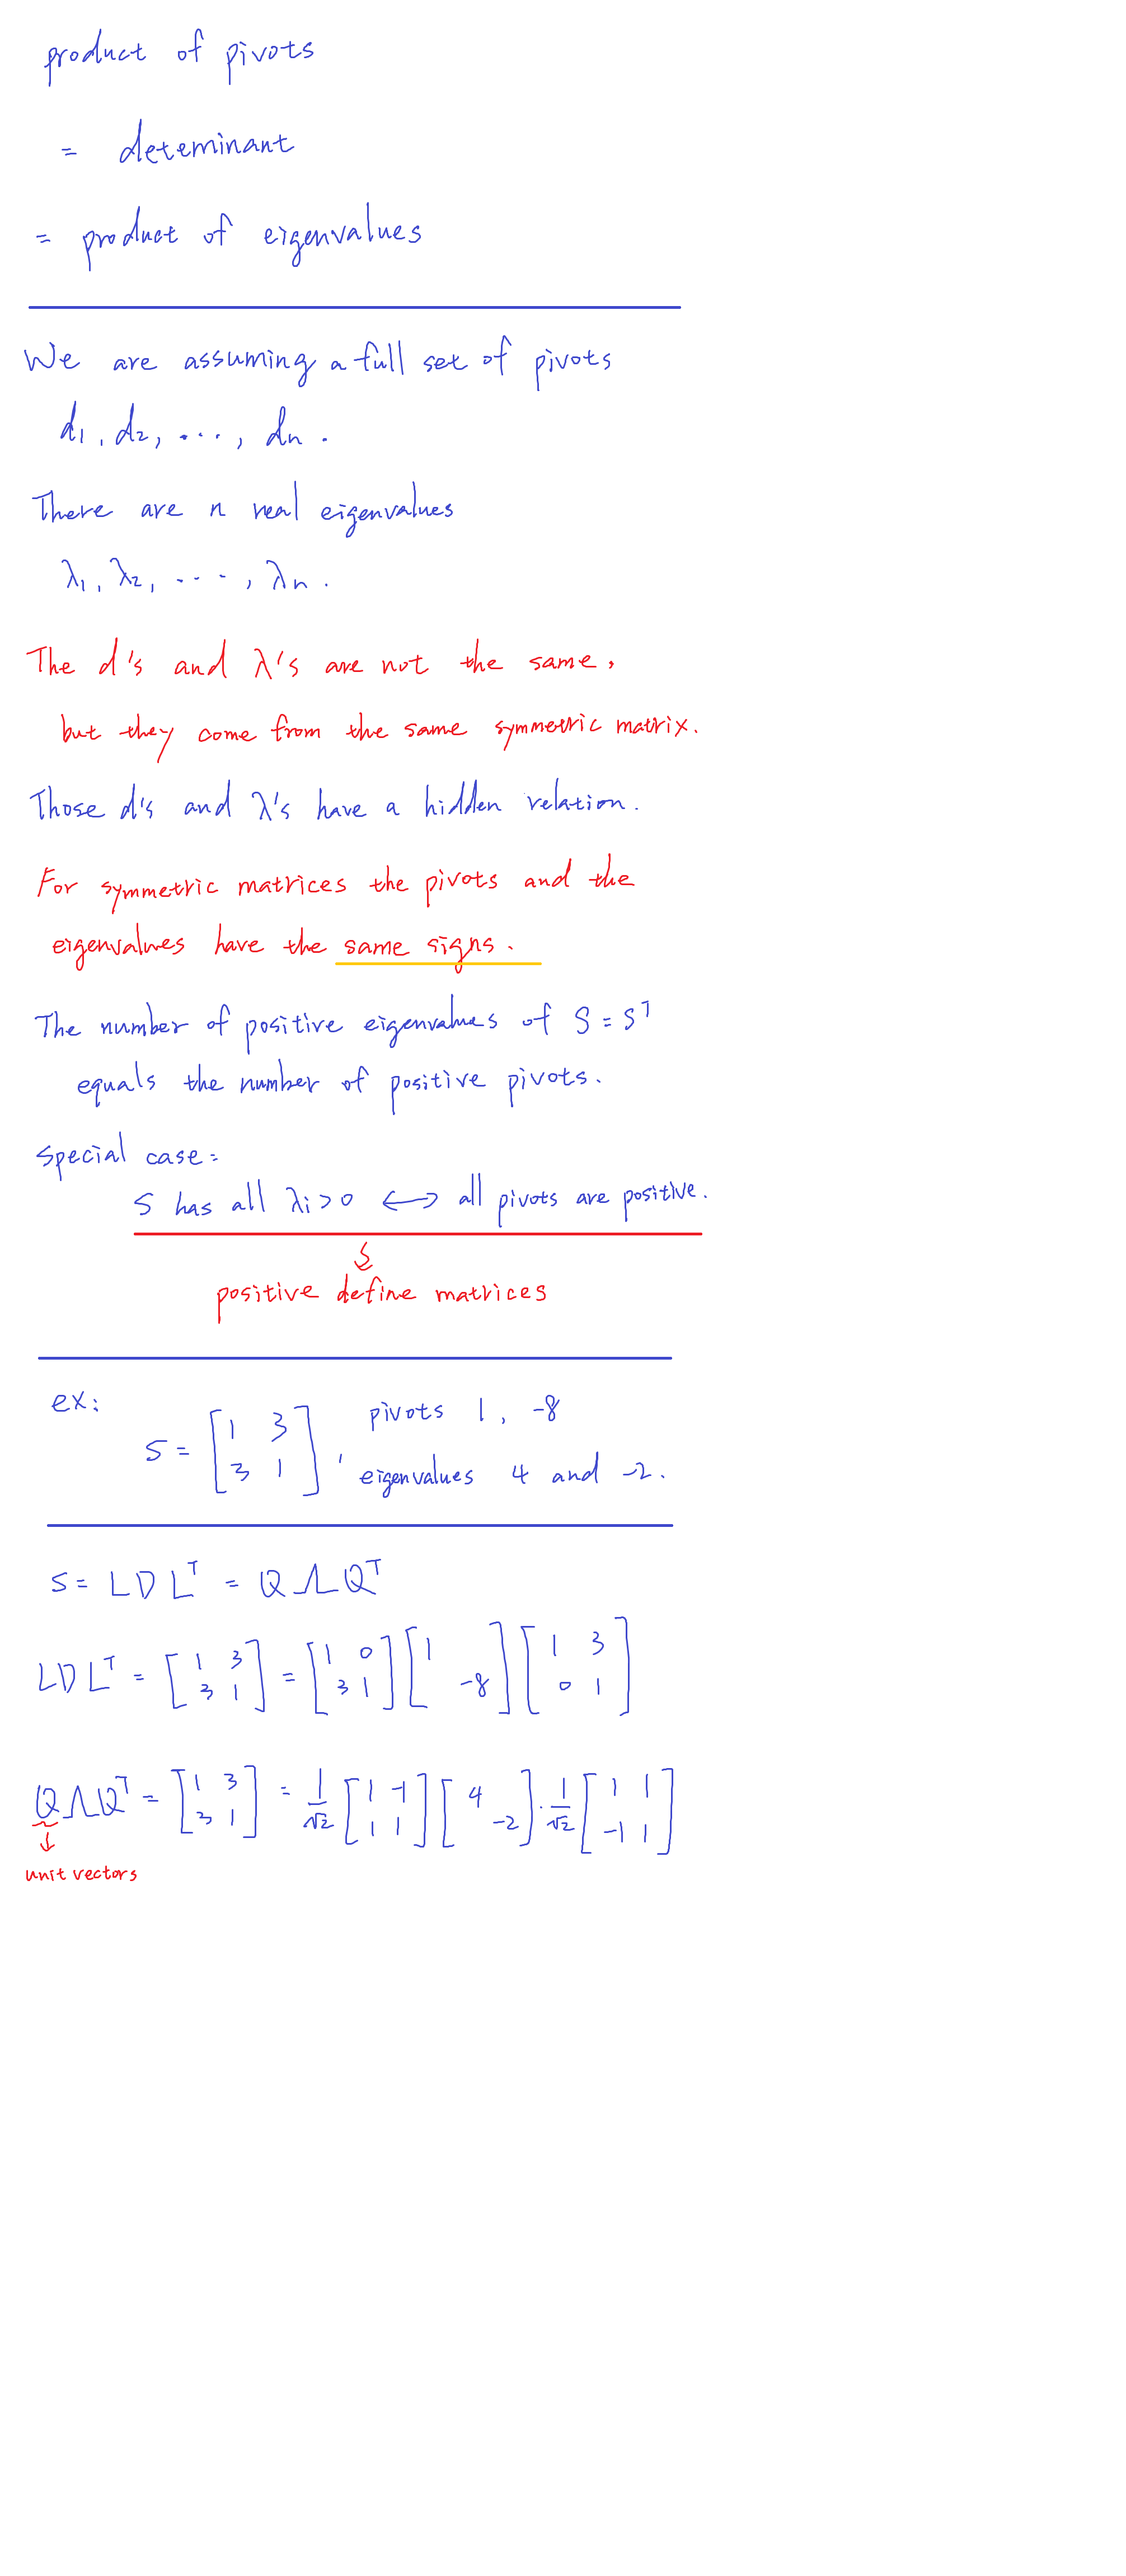 product of pivots
= deteminant
= product of eigenvalues
We are assuming a full set of pivots
d1, d2, ..., dn.
There are n real eigenvalues
λ1, λ2, ...., λn.
The d's and λ's are not the same,
but they come from the same symmetric matrix.
Those d's and λ's have a hidden relation.
For symmetric matrices the pivots and the
eigenvalues have the same signs.
The number of positive eigenvalues of S = Sᵀ
equals the number of positive pivots.
Special case:
S has all λi > 0 ⟷ all pivots are positive.
positive define matrices
ex:
S = [1 3; 3 1], pivots 1, -8
eigenvalues 4 and -2.
S = LDLᵀ = QΛQᵀ
LDLᵀ = [1 3; 3 1] = [1 0; 3 1] [1 ; -8] [1 3; 0 1]
QΛQᵀ = [1 3; 3 1] = 1/√2 [1 -1; 1 1] [4 ; -2] · 1/√2 [1 1; -1 1]
unit vectors